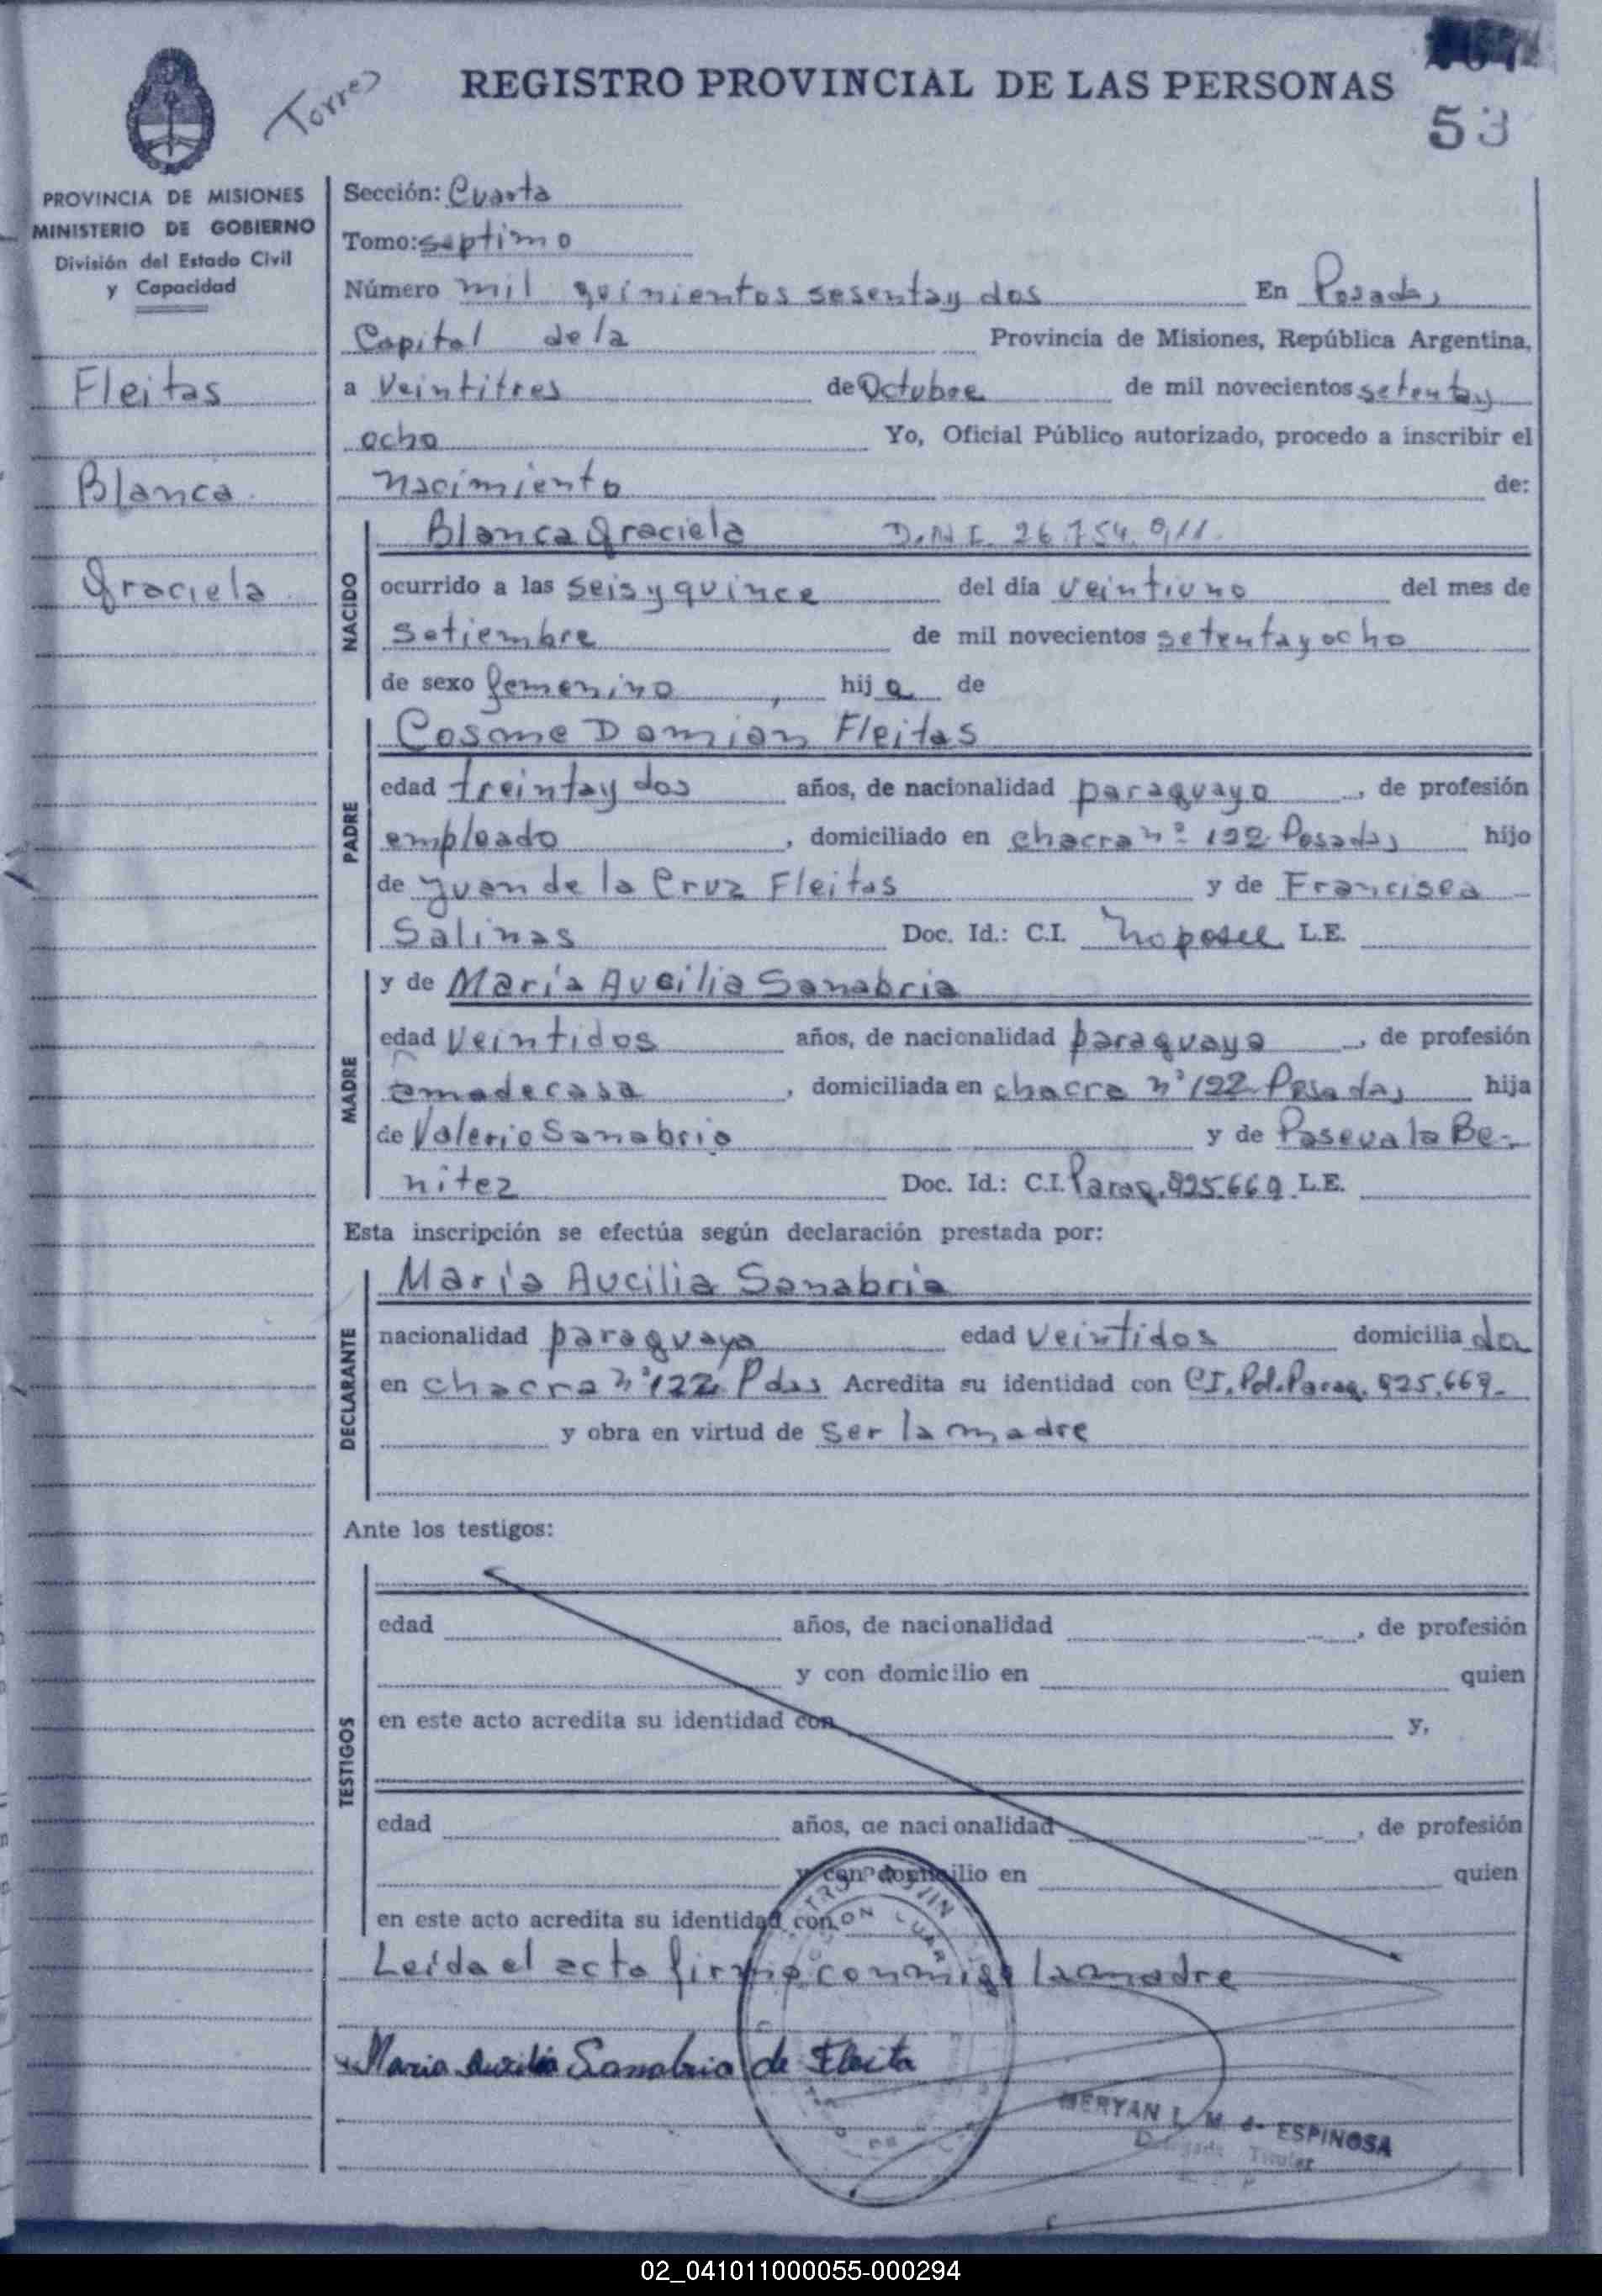 Torres
REGISTRO PROVINCIAL DE LAS PERSONAS
53
PROVINCIA DE MISIONES
MINISTERIO DE GOBIERNO
División del Estado Civil
y Capacidad
Fleitas
Blanca
Graciela
Sección: Cuarta
Tomo: septimo
Número mil quinientos sesenta y dos En Posadas
Capital de la Provincia de Misiones, República Argentina,
a Veintitres de Octubre de mil novecientos setenta y
ocho Yo, Oficial Público autorizado, procedo a inscribir el
nacimiento de:
NACIDO
Blanca Graciela D.N.I. 26.754.911.
ocurrido a las seis y quince del día veintiuno del mes de
Setiembre de mil novecientos setenta y ocho
de sexo femenino, hija de
PADRE
Cosme Damian Fleitas
edad treinta y dos años, de nacionalidad paraguayo, de profesión
empleado, domiciliado en chacra nº 122 Posadas hijo
de Juan de la Cruz Fleitas y de Francisca
Salinas Doc. Id.: C.I. No posee L.E.
MADRE
y de María Aucilia Sanabria
edad Veintidos años, de nacionalidad paraguaya, de profesión
ama de casa, domiciliada en chacra nº 122 Posadas hija
de Valerio Sanabria y de Pascuala Be-
nitez Doc. Id.: C.I. Parag. 925.669 L.E.
Esta inscripción se efectúa según declaración prestada por:
DECLARANTE
María Aucilia Sanabria
nacionalidad paraguaya edad Veintidos domiciliada
en chacra nº 122 Pdas Acredita su identidad con CI. Pol. Parag. 925.669.
y obra en virtud de ser la madre
Ante los testigos:
TESTIGOS
edad años, de nacionalidad , de profesión
y con domicilio en quien
en este acto acredita su identidad con y,
edad años, de nacionalidad , de profesión
y con domicilio en quien
en este acto acredita su identidad con
Leída el acta firma conmigo la madre
Maria Auxilia Sanabria de Fleita
MERYAN L. M. de ESPINOSA
Delegada Titular
02_041011000055-000294